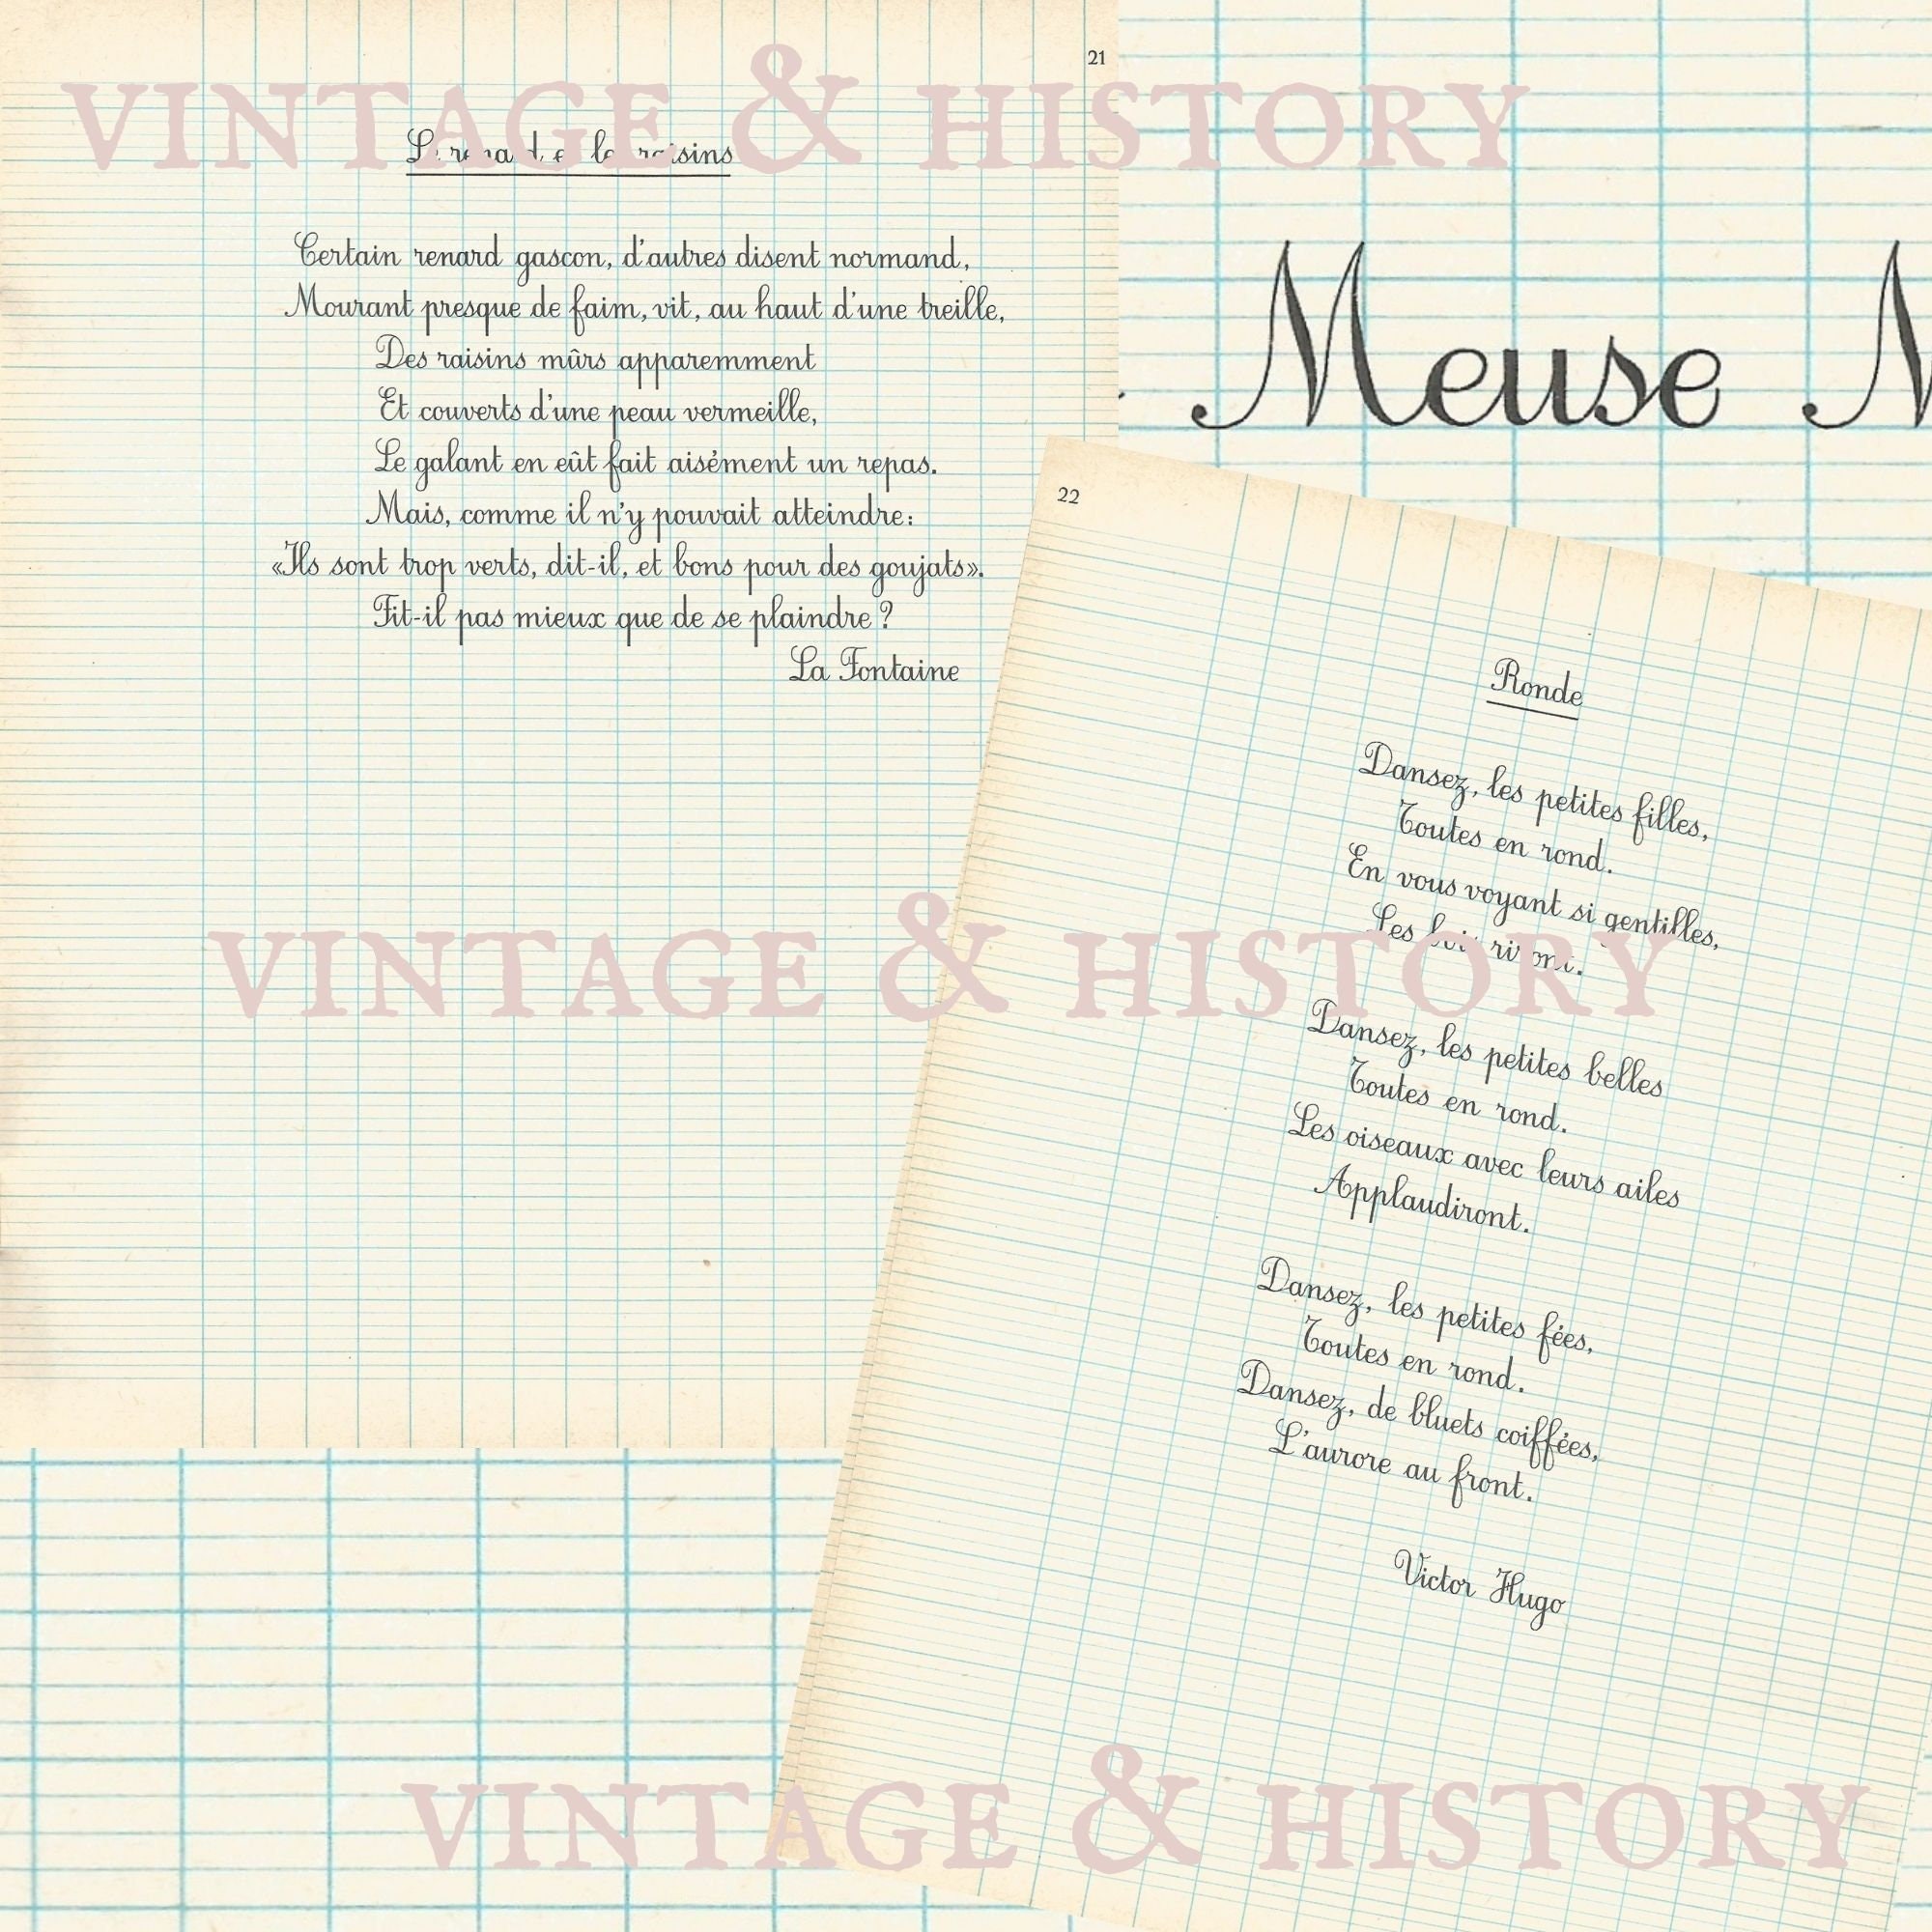 VINTAGE & HISTORY
21
Le renard et les raisins
Certain renard gascon, d'autres disent normand,
Mourant presque de faim, vit, au haut d'une treille,
Des raisins mûrs apparemment
Et couverts d'une peau vermeille,
Le galant en eût fait aisément un repas.
Mais, comme il n'y pouvait atteindre:
«Ils sont trop verts, dit-il, et bons pour des goujats».
Fit-il pas mieux que de se plaindre ?
La Fontaine
Meuse M
22
Ronde
Dansez, les petites filles,
Toutes en rond.
En vous voyant si gentilles,
Les bois riront.
VINTAGE & HISTORY
Dansez, les petites belles
Toutes en rond.
Les oiseaux avec leurs ailes
Applaudiront.
Dansez, les petites fées,
Toutes en rond.
Dansez, de bluets coiffées,
L'aurore au front.
Victor Hugo
VINTAGE & HISTORY